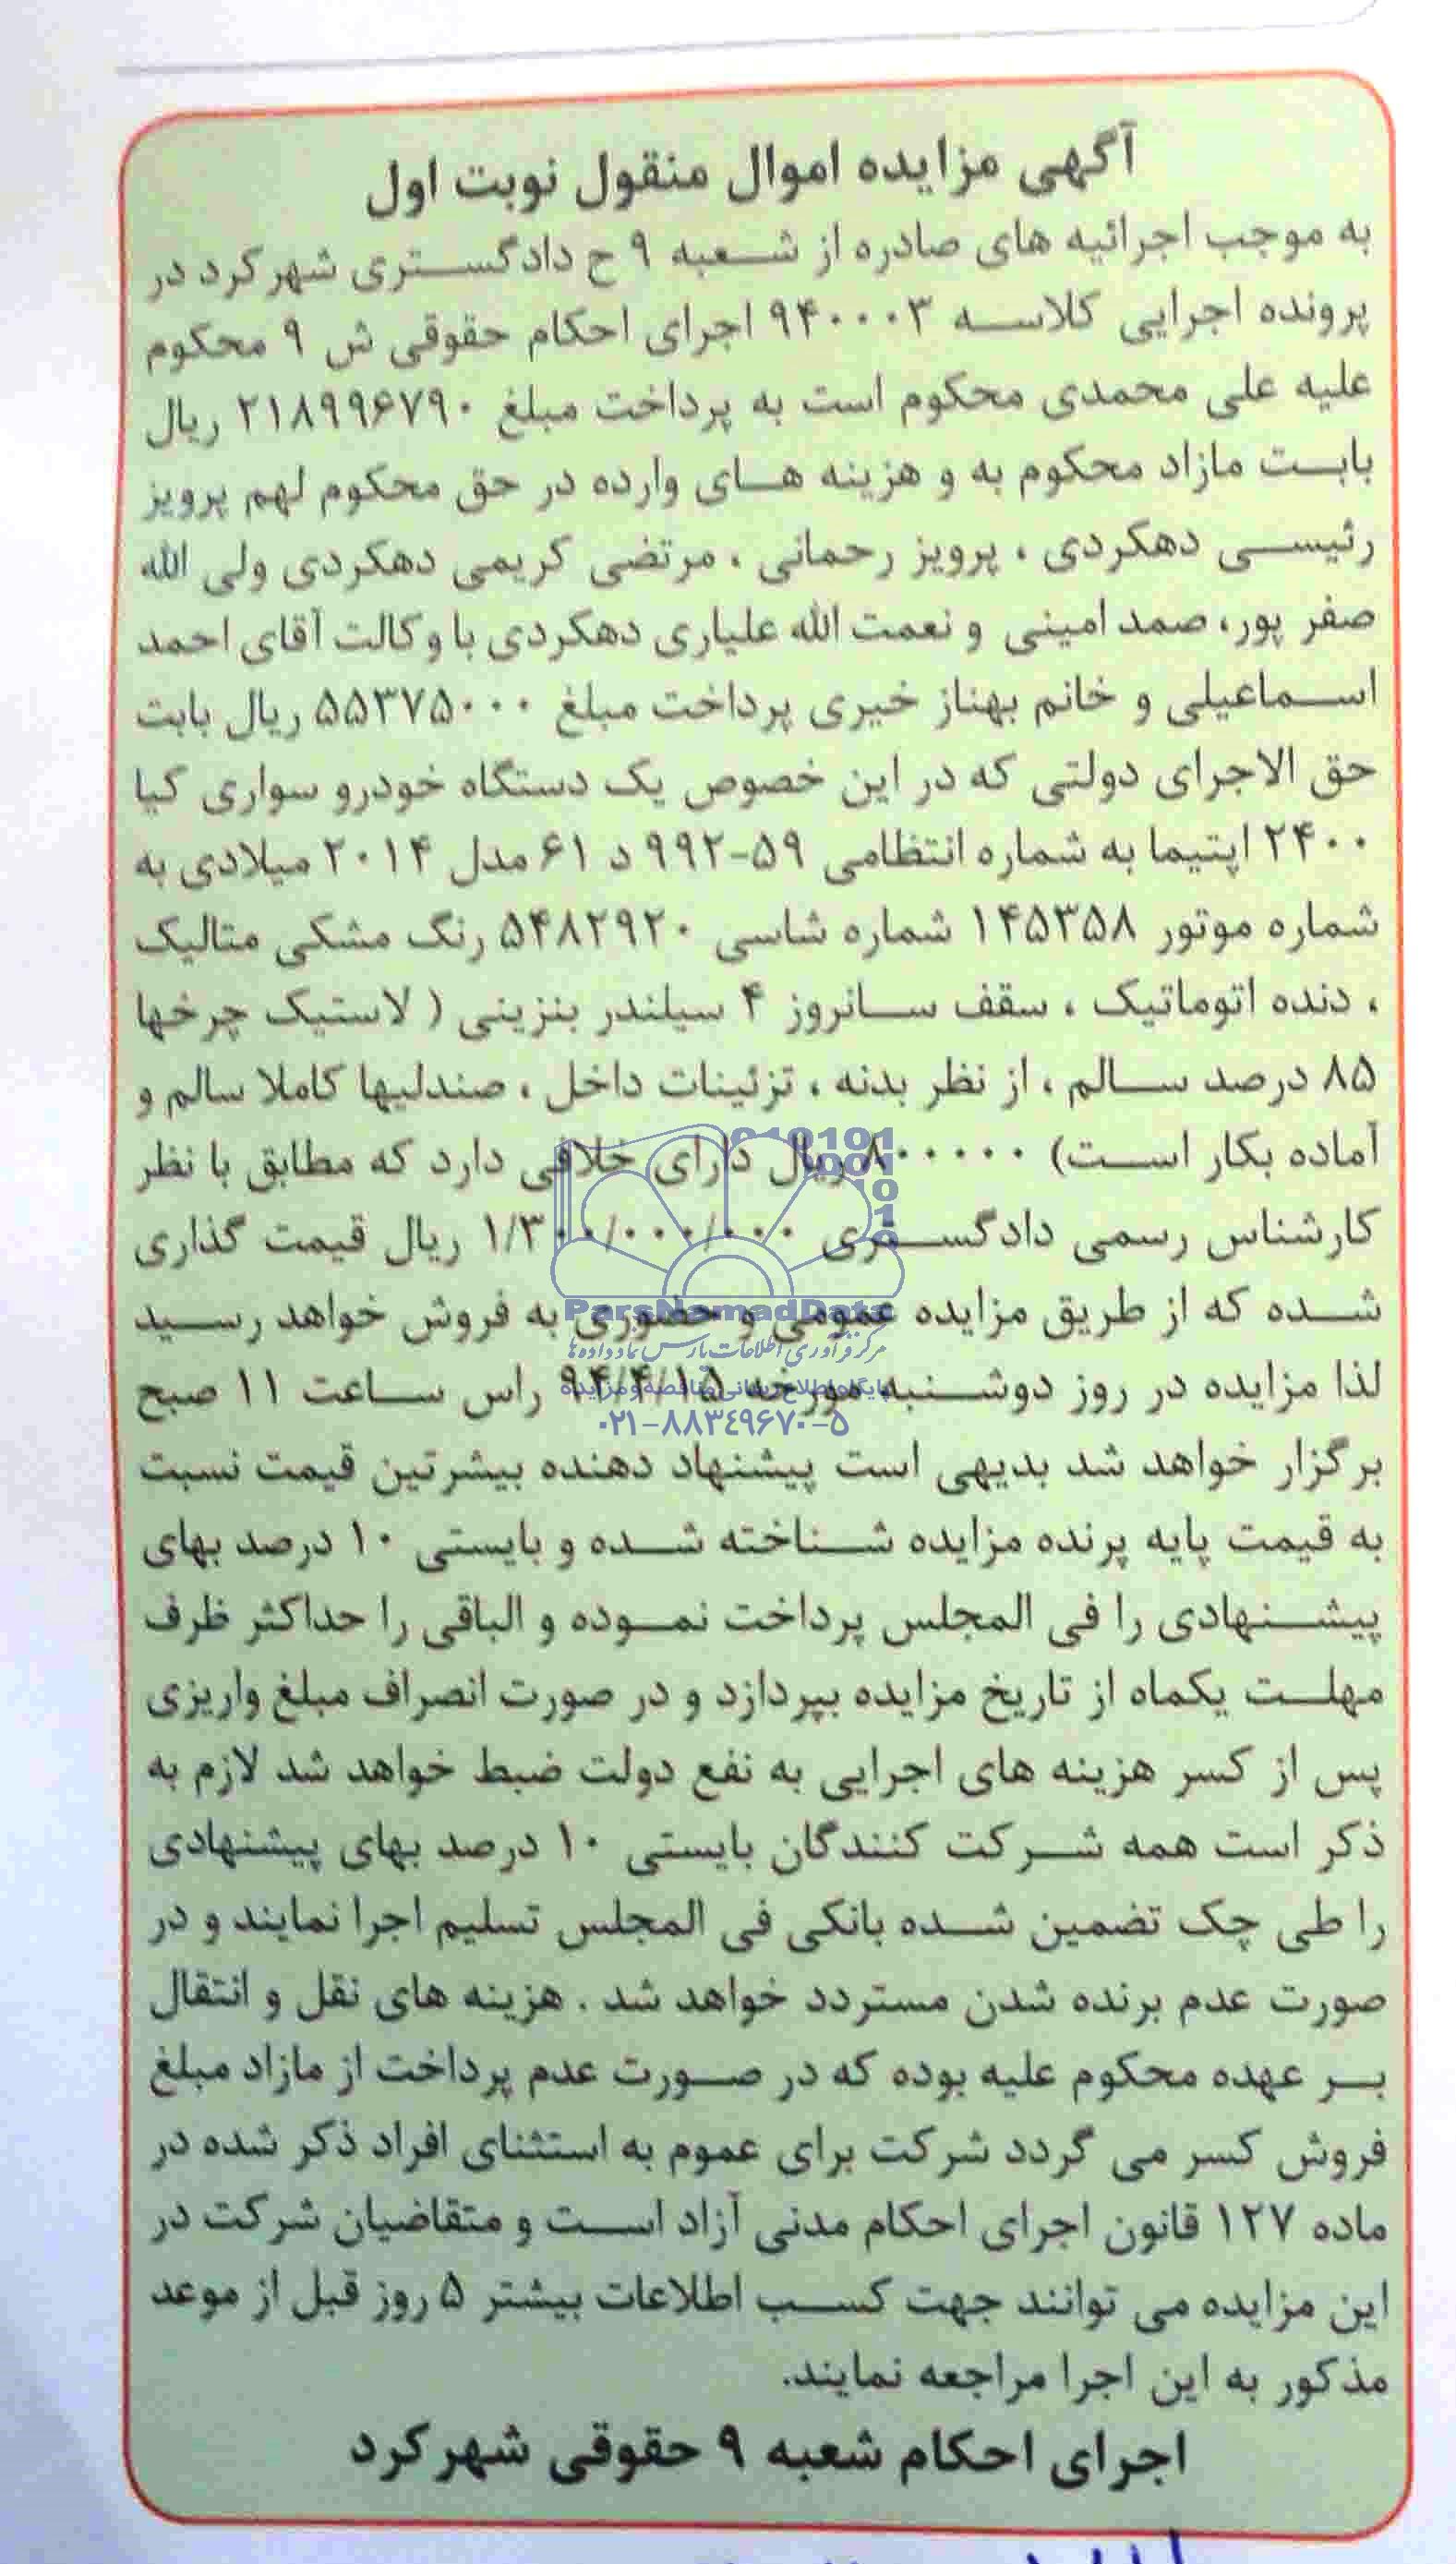 آگهی مزایده اموال منقول نوبت اول
به موجب اجرائیه های صادره از شعبه ۹ ح دادگستری شهرکرد در
پرونده اجرایی کلاسه ۹۴۰۰۰۳ اجرای احکام حقوقی ش ۹ محکوم
علیه علی محمدی محکوم است به پرداخت مبلغ ۲۱۸۹۹۶۷۹۰ ریال
بابت مازاد محکوم به و هزینه های وارده در حق محکوم لهم پرویز
رئیسی دهکردی ، پرویز رحمانی ، مرتضی کریمی دهکردی ولی الله
صفر پور، صمد امینی و نعمت الله علیاری دهکردی با وکالت آقای احمد
اسماعیلی و خانم بهناز خیری پرداخت مبلغ ۵۵۳۷۵۰۰۰ ریال بابت
حق الاجرای دولتی که در این خصوص یک دستگاه خودرو سواری کیا
۲۴۰۰ اپتیما به شماره انتظامی ۵۹-۹۹۲ د ۶۱ مدل ۲۰۱۴ میلادی به
شماره موتور ۱۴۵۳۵۸ شماره شاسی ۵۴۸۲۹۲۰ رنگ مشکی متالیک
، دنده اتوماتیک ، سقف سانروز ۴ سیلندر بنزینی ( لاستیک چرخها
۸۵ درصد سالم ، از نظر بدنه ، تزئینات داخل ، صندلیها کاملا سالم و
آماده بکار است) ۸۰۰۰۰۰ ریال دارای خلافی دارد که مطابق با نظر
کارشناس رسمی دادگستری ۱/۳۰۰/۰۰۰/۰۰۰ ریال قیمت گذاری
شده که از طریق مزایده عمومی و حضوری به فروش خواهد رسید
ParsNamadData
مرکز فرآوری اطلاعات پارس نماد داده ها
لذا مزایده در روز دوشنبه مورخه ۹۴/۴/۱۵ راس ساعت ۱۱ صبح
پایگاه اطلاع رسانی مناقصه و مزایده
۰۲۱-۸۸۳۴۹۶۷۰-۵
برگزار خواهد شد بدیهی است پیشنهاد دهنده بیشرتین قیمت نسبت
به قیمت پایه پرنده مزایده شناخته شده و بایستی ۱۰ درصد بهای
پیشنهادی را فی المجلس پرداخت نموده و الباقی را حداکثر ظرف
مهلت یکماه از تاریخ مزایده بپردازد و در صورت انصراف مبلغ واریزی
پس از کسر هزینه های اجرایی به نفع دولت ضبط خواهد شد لازم به
ذکر است همه شرکت کنندگان بایستی ۱۰ درصد بهای پیشنهادی
را طی چک تضمین شده بانکی فی المجلس تسلیم اجرا نمایند و در
صورت عدم برنده شدن مستردد خواهد شد . هزینه های نقل و انتقال
بر عهده محکوم علیه بوده که در صورت عدم پرداخت از مازاد مبلغ
فروش کسر می گردد شرکت برای عموم به استثنای افراد ذکر شده در
ماده ۱۲۷ قانون اجرای احکام مدنی آزاد است و متقاضیان شرکت در
این مزایده می توانند جهت کسب اطلاعات بیشتر ۵ روز قبل از موعد
مذکور به این اجرا مراجعه نمایند.
اجرای احکام شعبه ۹ حقوقی شهرکرد